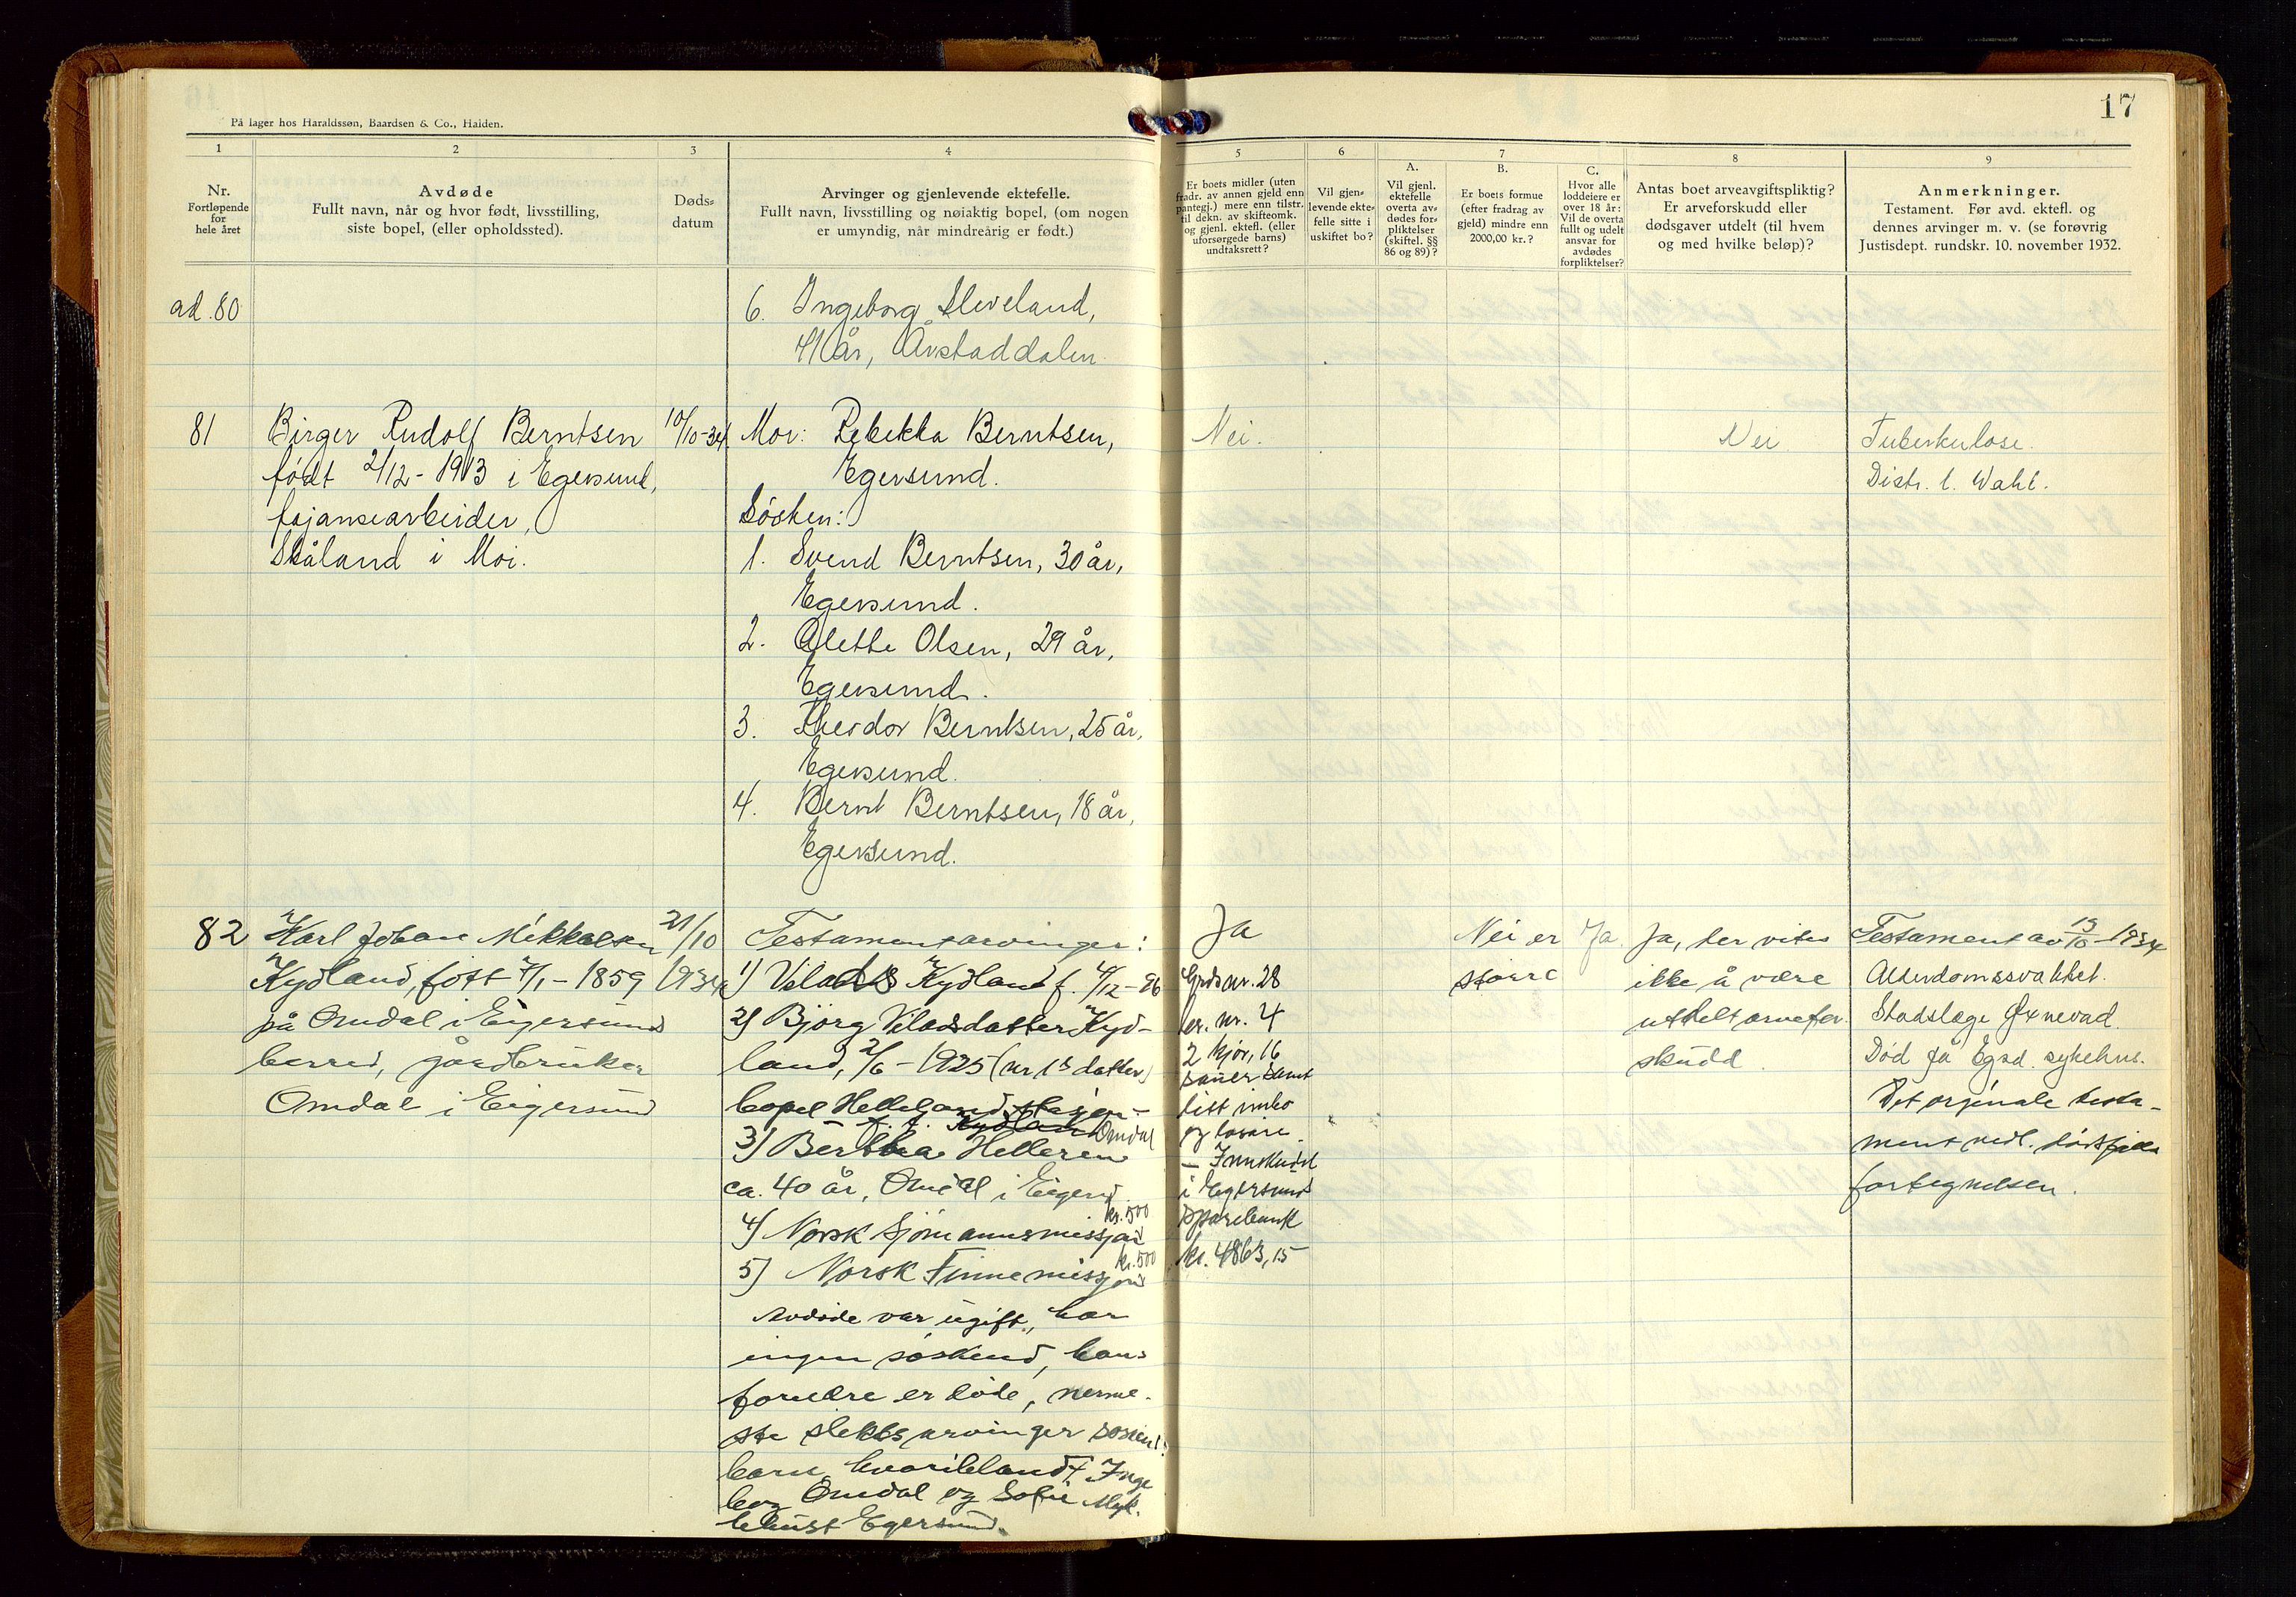 17
På lager hos Haraldssøn, Baardsen & Co., Halden.
1
2
3
4
5
6
7
8
9
Nr.
Fortløpende
for
hele året
Avdøde
Fullt navn, når og hvor født, livsstilling,
siste bopel, (eller opholdssted).
Døds-
datum
Arvinger og gjenlevende ektefelle.
Fullt navn, livsstilling og nøiaktig bopel, (om nogen
er umyndig, når mindreårig er født.)
Er boets midler (uten
fradr. av annen gjeld enn
pantegj.) mere enn tilstr.
til dekn. av skifteomk.
og gjenl. ektefl. (eller
uforsørgede barns)
undtaksrett?
Vil gjen-
levende ekte-
felle sitte i
uskiftet bo?
A.
Vil gjenl.
ektefelle
overta av-
dødes for-
pliktelser
(skiftel. §§
86 og 89)?
B.
Er boets formue
(efter fradrag av
gjeld) mindre enn
2000,00 kr.?
C.
Hvor alle
loddeiere er
over 18 år:
Vil de overta
fullt og udelt
ansvar for
avdødes
forpliktelser?
Antas boet arveavgiftspliktig?
Er arveforskudd eller
dødsgaver utdelt (til hvem
og med hvilke beløp)?
Anmerkninger.
Testament. Før avd. ektefl. og
dennes arvinger m. v. (se forøvrig
Justisdept. rundskr. 10. november 1932.
ad. 80
6. Ingeborg Sleveland,
41 år, Årstaddalen
81
Birger Rudolf Berntsen
født 2/12-1913 i Egersund,
fajansearbeider,
Skåland i Moi.
10/10-34
Mor: Rebekka Berntsen,
Egersund.
Søsken:
1. Svend Berntsen, 30 år,
Egersund.
2. Alette Olsen, 29 år,
Egersund.
3. Theodor Berntsen, 25 år,
Egersund.
4. Bernt Berntsen, 18 år,
Egersund.
Nei.
Nei
Tuberkulose.
Distr. l. Wahl.
82
Karl Johan Mikkalsen
Kydland, født 7/1-1859
på Omdal i Eigersund
herred, gårdbruker
Omdal i Eigersund
21/10
1934
Testamentarvinger:
1) Vilads Kydland f. 4/12-96
2) Bjørg Viladsdatter Kyd-
land, 2/6-1925 (nr 1s datter)
bopel Helleland stasjon-
Omdal
3) Bertha Helleren
ca. 40 år, Omdal i Eigers
kr. 500
4) Norsk Sjømannsmisjon
kr. 500
5) Norsk Finnemisjon
Avdøde var ugift, har
ingen søskend, hans
foreldre er døde, nerme-
ste slektsarvinger søsken-
barn, hvoriblandt Inge
borg Omdal og Sofie Myk-
lebust Egersund.
Ja
Grdsnr. 28
br. nr. 4
2 kjør, 16
sauer samt
litt innbo
og løsøre.
- Innskudd
i Egersund
Sparebank
kr. 4863,15
Nei er
større
Ja
Ja, der vites
ikke å være
utdelt arvefor-
skudd
Testament av 13/10-1934
Alderdomssvakhet.
Stadslæge Øxnevad.
Død på Egsd. sykehus.
Det orginale testa-
ment vedl. dødsfalls
fortegnelsen.